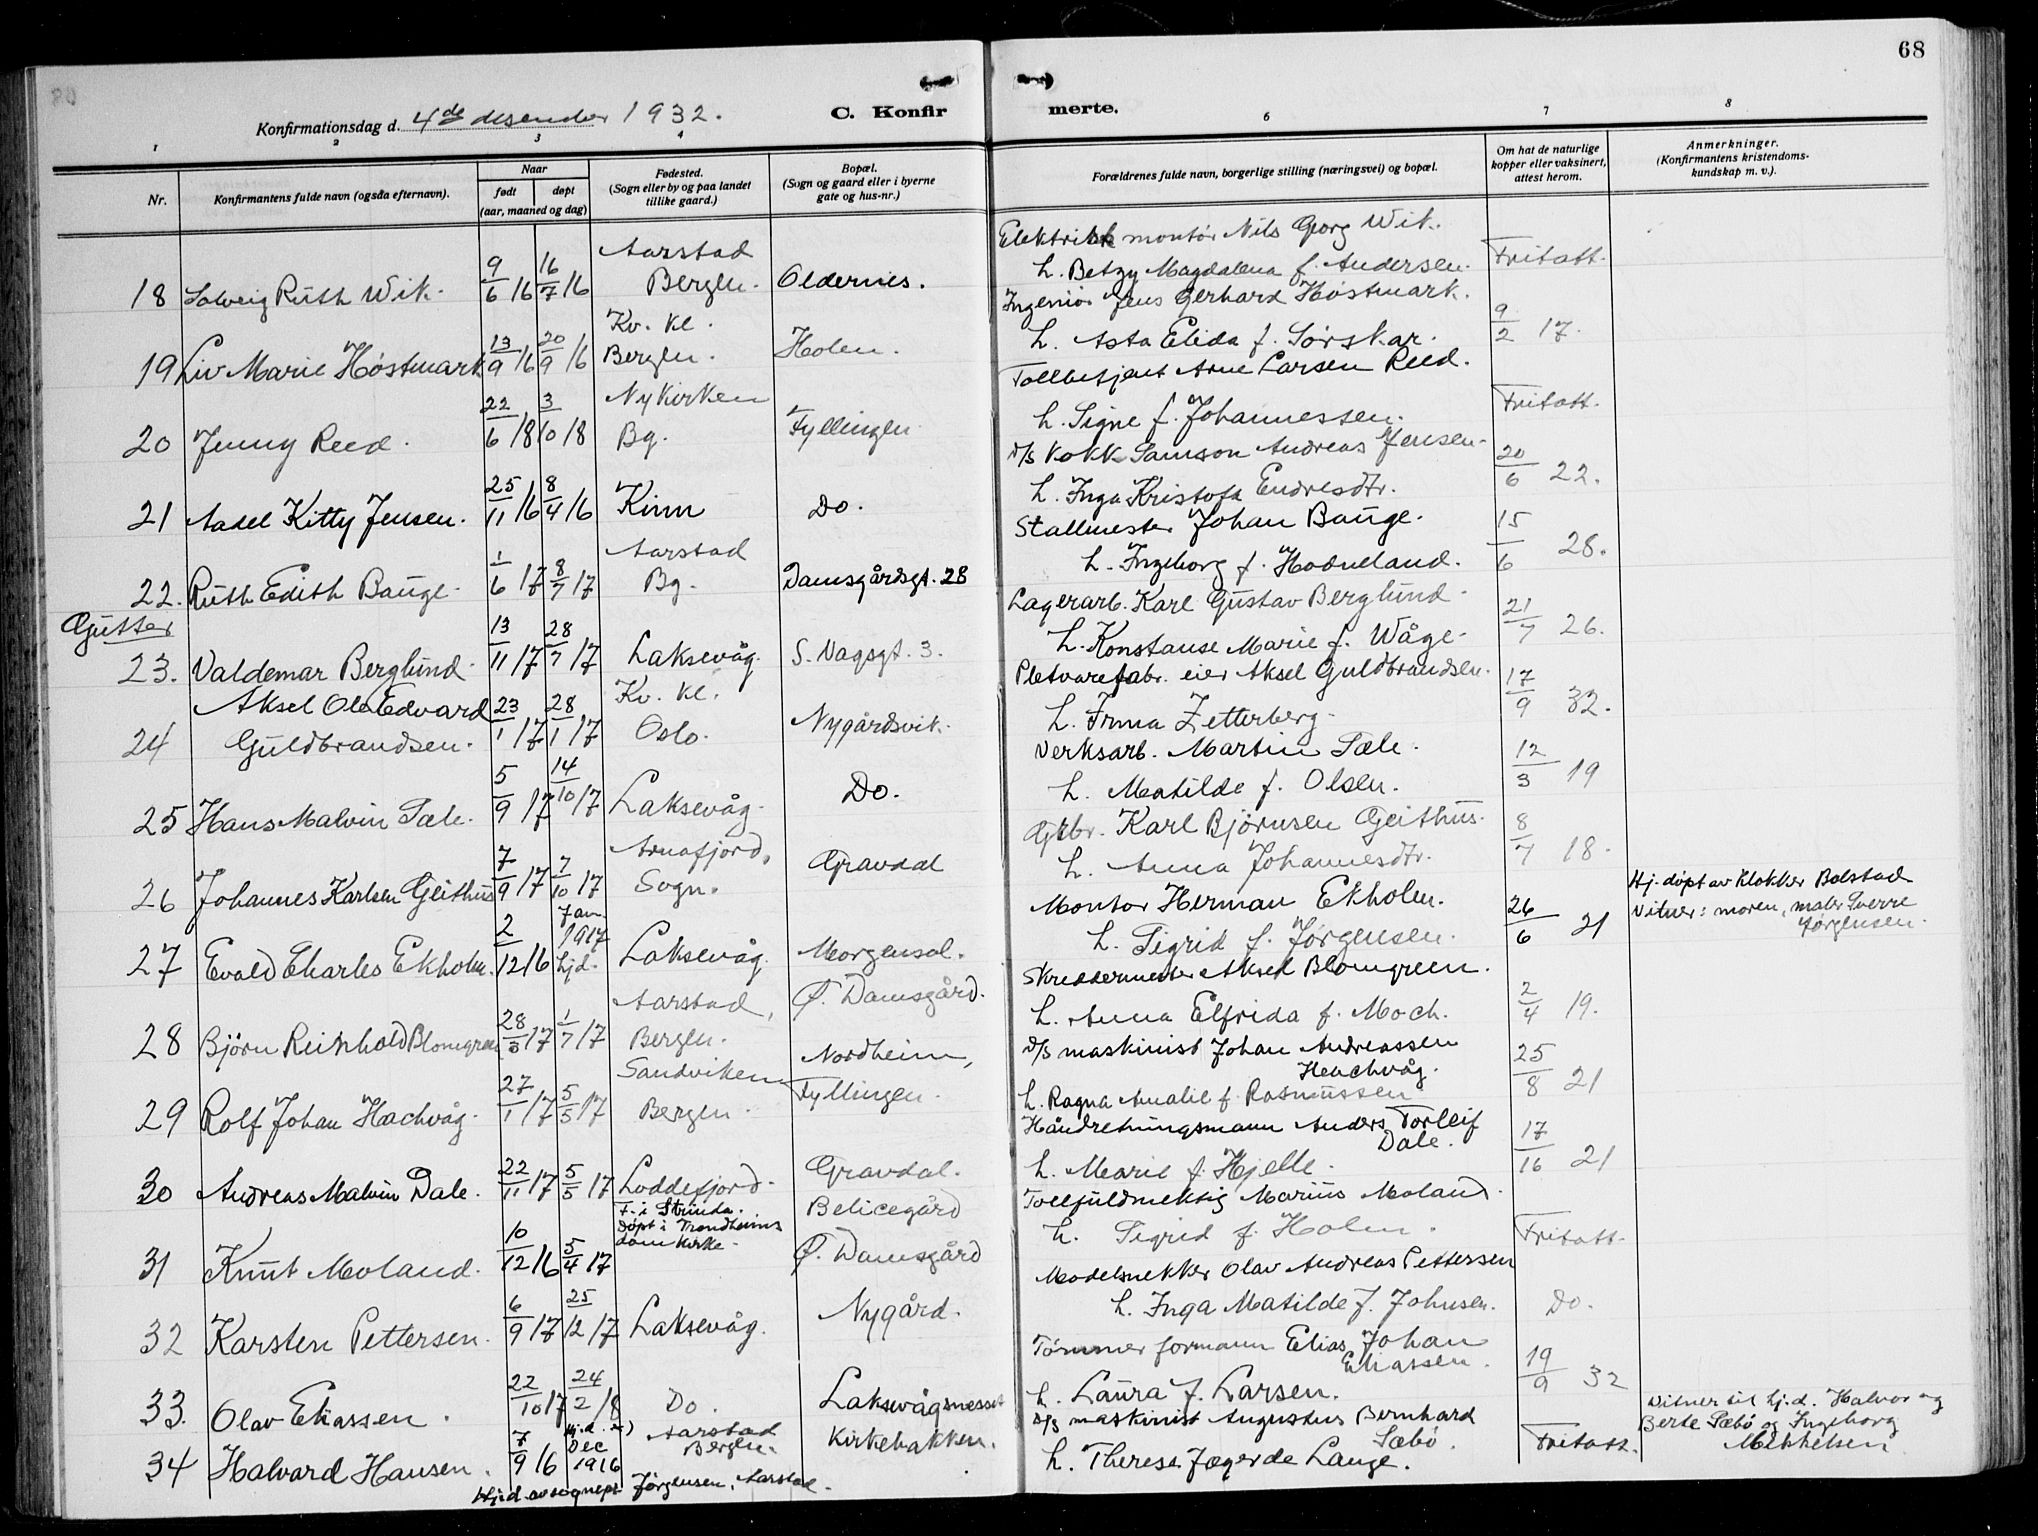 68
Konfirmationsdag d. 4de desember 1932.
C. Konfirmerte.
1 2 3 4 6 7 8
Nr.
Konfirmantens fulde navn (ogsaa efternavn).
Naar
født døpt
(aar, maaned og dag)
Fødested.
(Sogn eller by og paa landet
tillike gaard.)
Bopæl.
(Sogn og gaard eller i byerne
gate og hus-nr.)
Forældrenes fulde navn, borgerlige stilling (næringsvei) og bopæl.
Om hat de naturlige
kopper eller vaksinert,
attest herom.
Anmerkninger.
(Konfirmantens kristendoms-
kundskap m. v.).
Aarstad Elektrisk montör Nils Georg Wik.
18 Solveig Ruth Wik. 9/6 16 16/7 16 Bergen. Oldernes. h. Betzy Magdalena f. Andersen. Fritatt.
Kv. kl. Ingeniör Jens Gerhard Høstmark.
19 Liv Marie Höstmark 13/9 16 20/9 16 Bergen. Holen. h. Asta Elida f. Sørskar. 9/2 17.
Nykirken Tollbetjent Arne Larsen Reed.
20 Jenny Reed. 22/6 18 3/10 18 Bg. Fyllingen h. Signe f. Johannessen. Fritatt.
D/S Kokk Samson Andreas Jensen
21 Aadel Kitty Jensen. 25/11 16 8/4 16 Kinn Do. h. Inga Kristofa Endresdtr. 20/6 22.
Aarstad Stallmester Johan Bauge.
22. Ruth Edith Bauge. 1/6 17 8/7 17 Bg. Damsgårdsgt. 28 h. Ingeborg f. Hodneland. 15/6 28.
Gutter Lagerarb. Karl Gustav Berglund
23. Valdemar Berglund 13/11 17 28/7 17 Laksevåg. S. Vagsgt. 3. h. Konstanse Marie f. Wåge. 21/7 26.
Aksel Ole Edvard Kv. kl. Pletvarefabr. eier Aksel Guldbrandsen.
24 Guldbrandsen. 23/1 17 28/1 17 Oslo. Nygårdsvik. h. Irma Zetterberg. 17/9 32.
Verksarb. Martin Tæle.
25 Hans Malvin Tæle. 5/9 17 14/10 17 Laksevåg. Do. h. Matilde f. Olsen. 12/3 19
Arnafjord, Gbr. Karl Björnsen Geithus.
26 Johannes Karlsen Geithus 7/9 17 7/10 17 Sogn. Gravdal h. Anna Johannesdtr. 8/7 18.
Jan. 1917 Montör Herman Ekholm. Hj. döpt av klokker Bolstad
27 Evald Charles Ekholm. 2/12 16 hjd. Laksevåg. Morgensol. h. Sigrid f. Jørgensen. 26/6 21 Vitner: moren, maler Sverre
Jørgensen.
Aarstad, Skreddermester Aksel Blomgreen.
28 Björn Reinhold Blomgreen 28/3 17 1/7 17 Bergen. Ø. Damsgård. h. Anna Elfrida f. Moch. 2/4 19.
Sandviken Nordheim, D/S maskinist Johan Andreassen
Hachvåg.
29 Rolf Johan Hachvåg. 27/1 17 5/5 17 Bergen. Fyllingen. h. Ragna Amalie f. Rasmussen 25/8 21
Håndretningsmann Anders Torleif
Dale.
30 Andreas Malvin Dale. 22/11 17 5/5 17 Loddefjord. Gravdal. h. Marie f. Hjelle. 17/16 21
F. i Strinda. Belicegård Tollfuldmektig Marius Moland.
Döpt i Trondheims
31 Knut Moland. 10/12 16 5/4 17 domkirke. Ø. Damsgård h. Sigrid f. Holm. Fritatt.
Modelsnekker Olav Andreas Pettersen
32 Karsten Pettersen. 6/9 17 25/12 17 Laksevåg. Nygård. h. Inga Matilde f. Johnsen. Do.
Tömmer formann Elias Johan
Eliassen.
33. Olav Eliassen. 22/10 17 24/2 18 Do. Laksevågsnesset h. Laura f. Larsen. 19/9 32
hj.d. x) Aarstad D/S maskinist Augustus Bernhard Vitner til hj.d. Halvor og
Sæbö. Berte Sæbö og Ingeborg
34 Halvard Hansen. 7/9 16 Dec 1916 Bergen. Kirkebakken. h. Therese Jæger de Lange. Fritatt. Mikkelsen.
Hjd. av sognepr. Jörgensen, Aarstad.